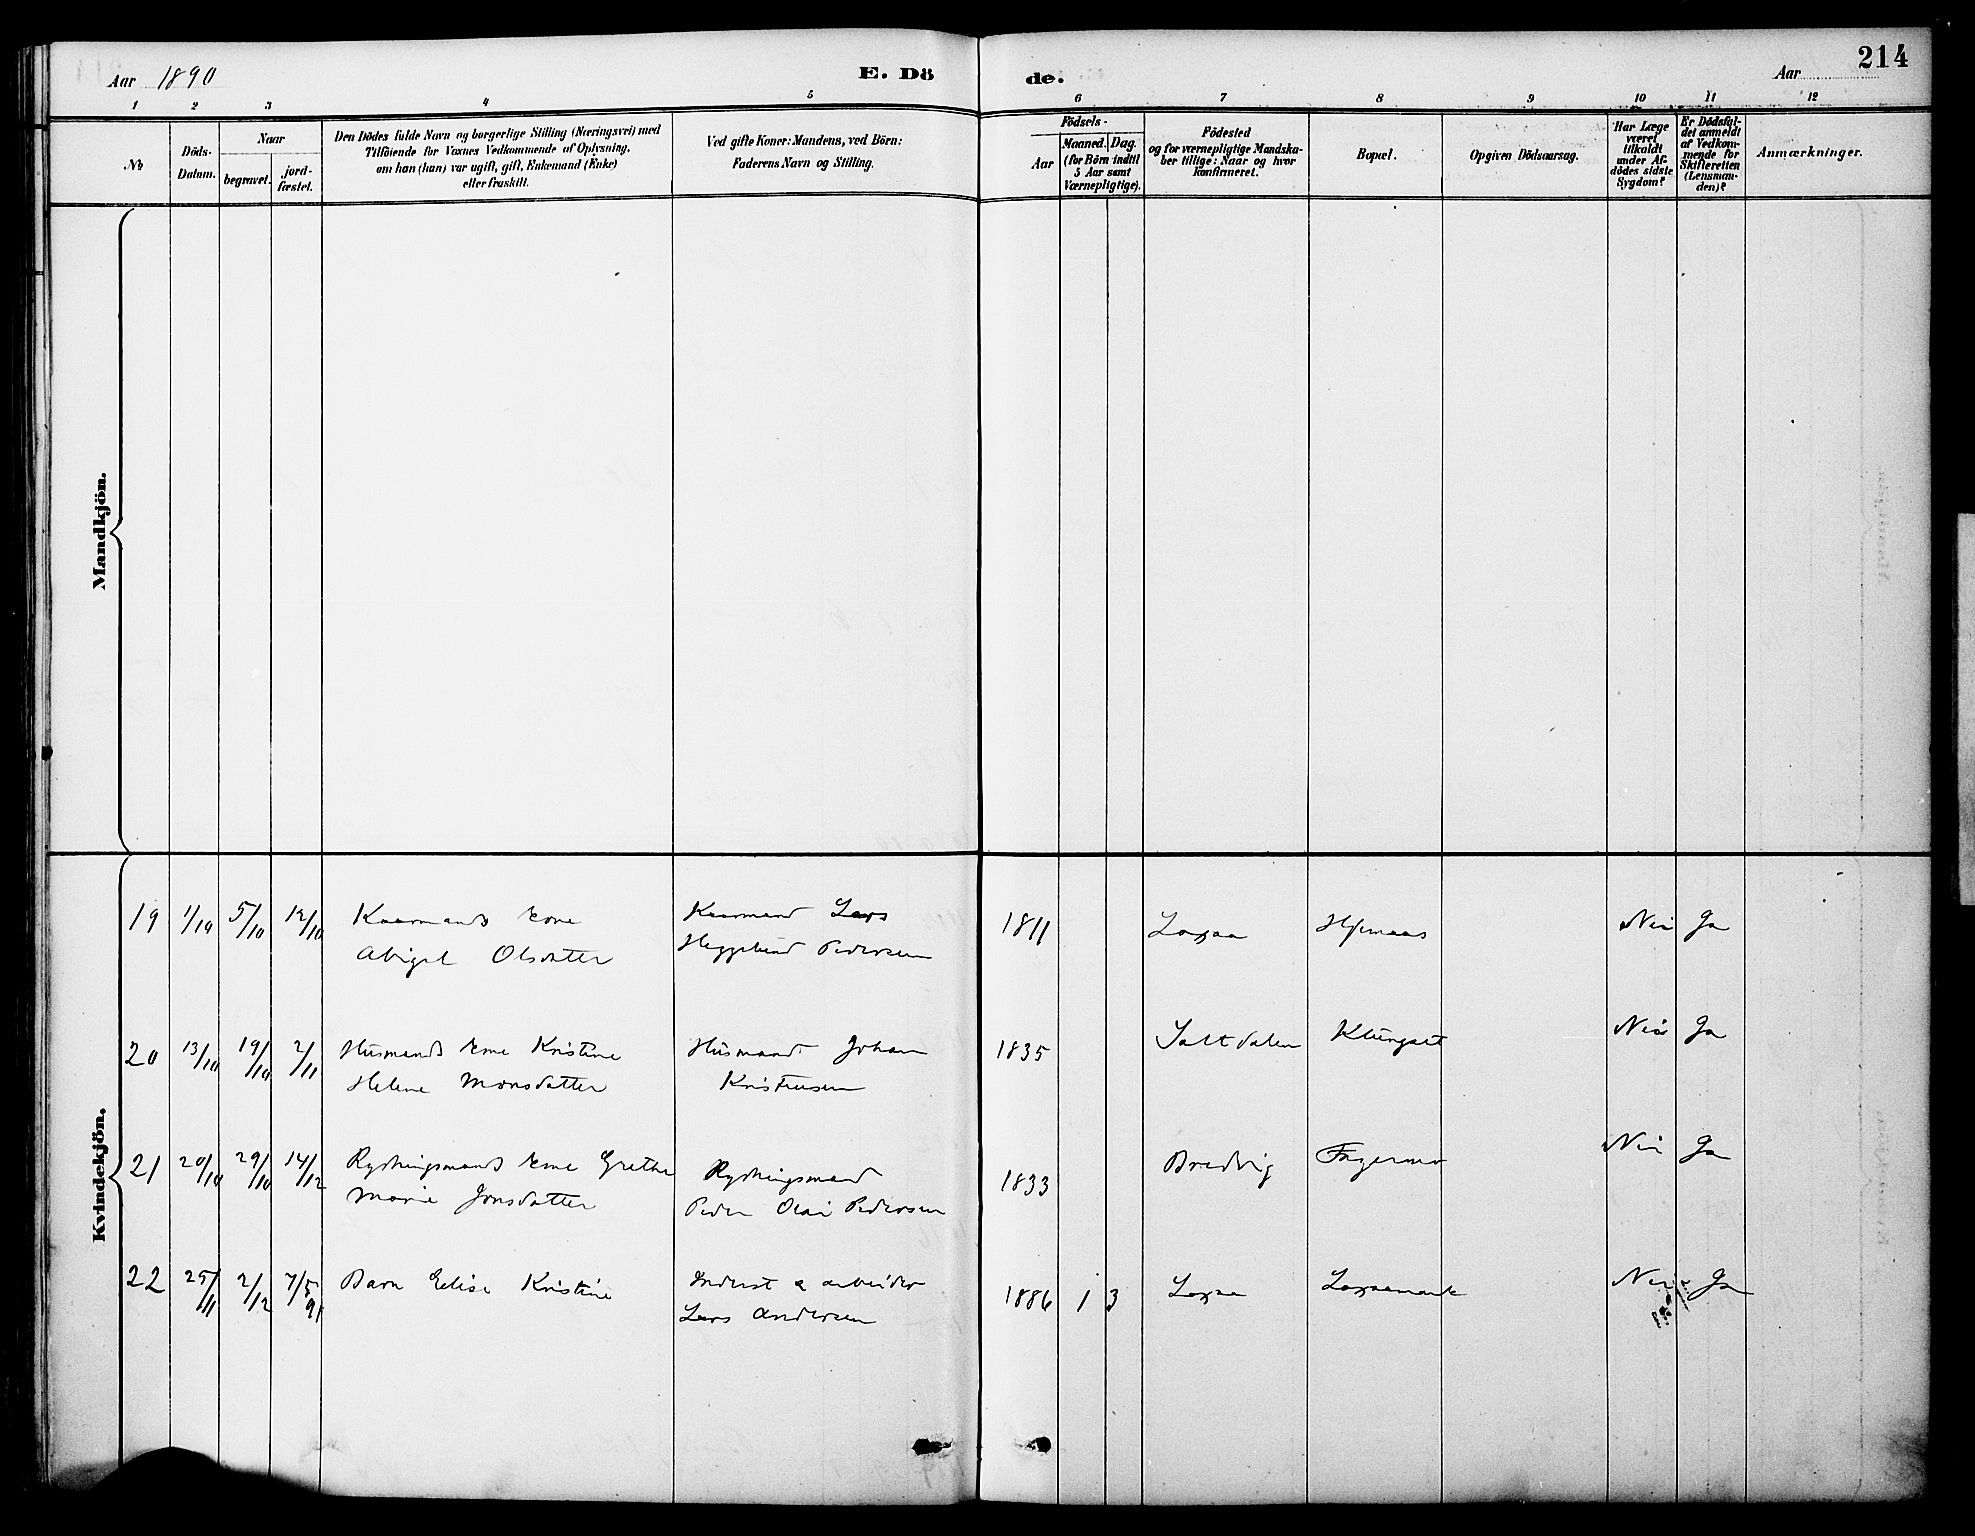 Aar 1890
E. Dö
de.
Aar
214
1 2 3 4 5 6 7 8 9 10 11 12
No
Döds-
Datum.
Naar
begravet.
jord-
fæstet.
Den Dödes fulde Navn og borgerlige Stilling (Næringsvei) med
Tilföiende for Voxnes Vedkommende af Oplysning,
om han (hun) var ugift, gift, Enkemand (Enke)
eller fraskilt.
Ved gifte Koner: Mandens, ved Börn:
Faderens Navn og Stilling.
Födsels-
Aar
Maaned. Dag.
(for Börn indtil
5 Aar samt
Værnepligtige).
Födested
og for værnepligtige Mandska-
ber tillige: Naar og hvor
konfirmeret.
Bopæl.
Opgiven Dödsaarsag.
Har Læge
været
tilkaldt
under Af-
dödes sidste
Sygdom?
Er Dödsfal-
det anmeldt
af Vedkom-
mende for
Skifteretten
(Lensman-
den)?
Anmærkninger.
Mandkjön.
Kvindekjön.
19 1/10 5/10 12/10 Kaarmands Kone Kaarmand Lars 1811 Nei Ja
Abigel Olsdatter Pedersen
20 13/10 19/10 2/11 Husmands Kone Kristine Husmand Johan 1835 Saltdalen Klungset Nei Ja
Helene Monsdatter Kristensen
21 20/10 29/10 14/12 Rydningsmands Kone Grethe Rydningsmand 1833 Bredvig Fagermo Nei Ja
Marie Jonsdatter Peder Olai Pedersen
22 25/11 2/12 7/5 91 Barn Elise Kristine Inderst & arbeider 1886 1 3 Nei Ja
Lars Andersen